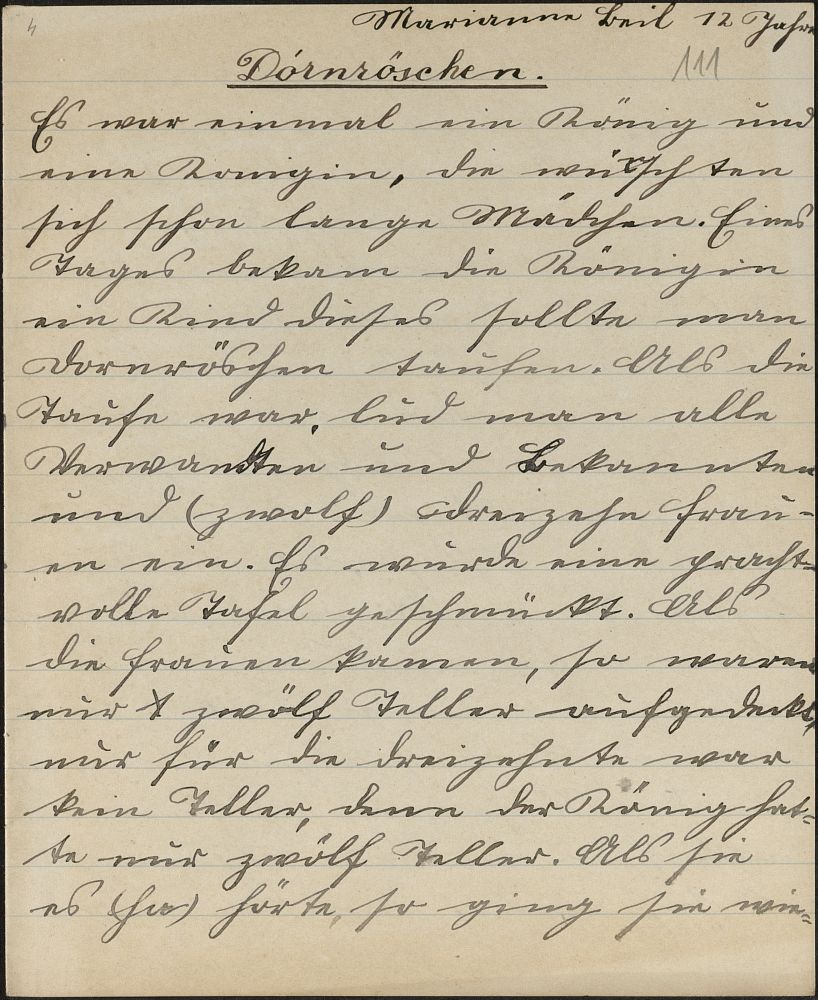 4
Marianne Beil 12 Jahre
Dornröschen.
111
Es war einmal ein König und
eine Konigin, die wünschten
sich schon lange Mädchen. Eines
Tages bekam die Königin
ein Kind dieses sollte man
Dornröschen taufen. Als die
Taufe war, lud man alle
Verwandten und Bekannten
und (zwolf) dreizehn Frau-
en ein. Es wurde eine pracht-
volle Tafel geschmückt. Als
die Frauen kamen, so waren
nur zwölf Teller aufgedeckt,
nur für die dreizehnte war
kein Teller, denn der König hat-
te nur zwölf Teller. Als sie
es (ha) hörte, so ging sie wie-